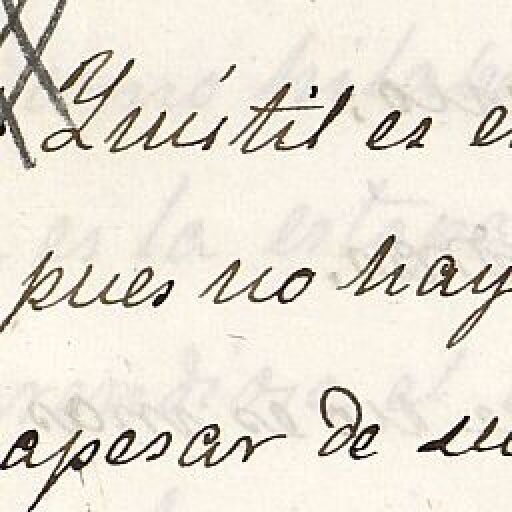 Inútil es e
pues no hay
apesar de su